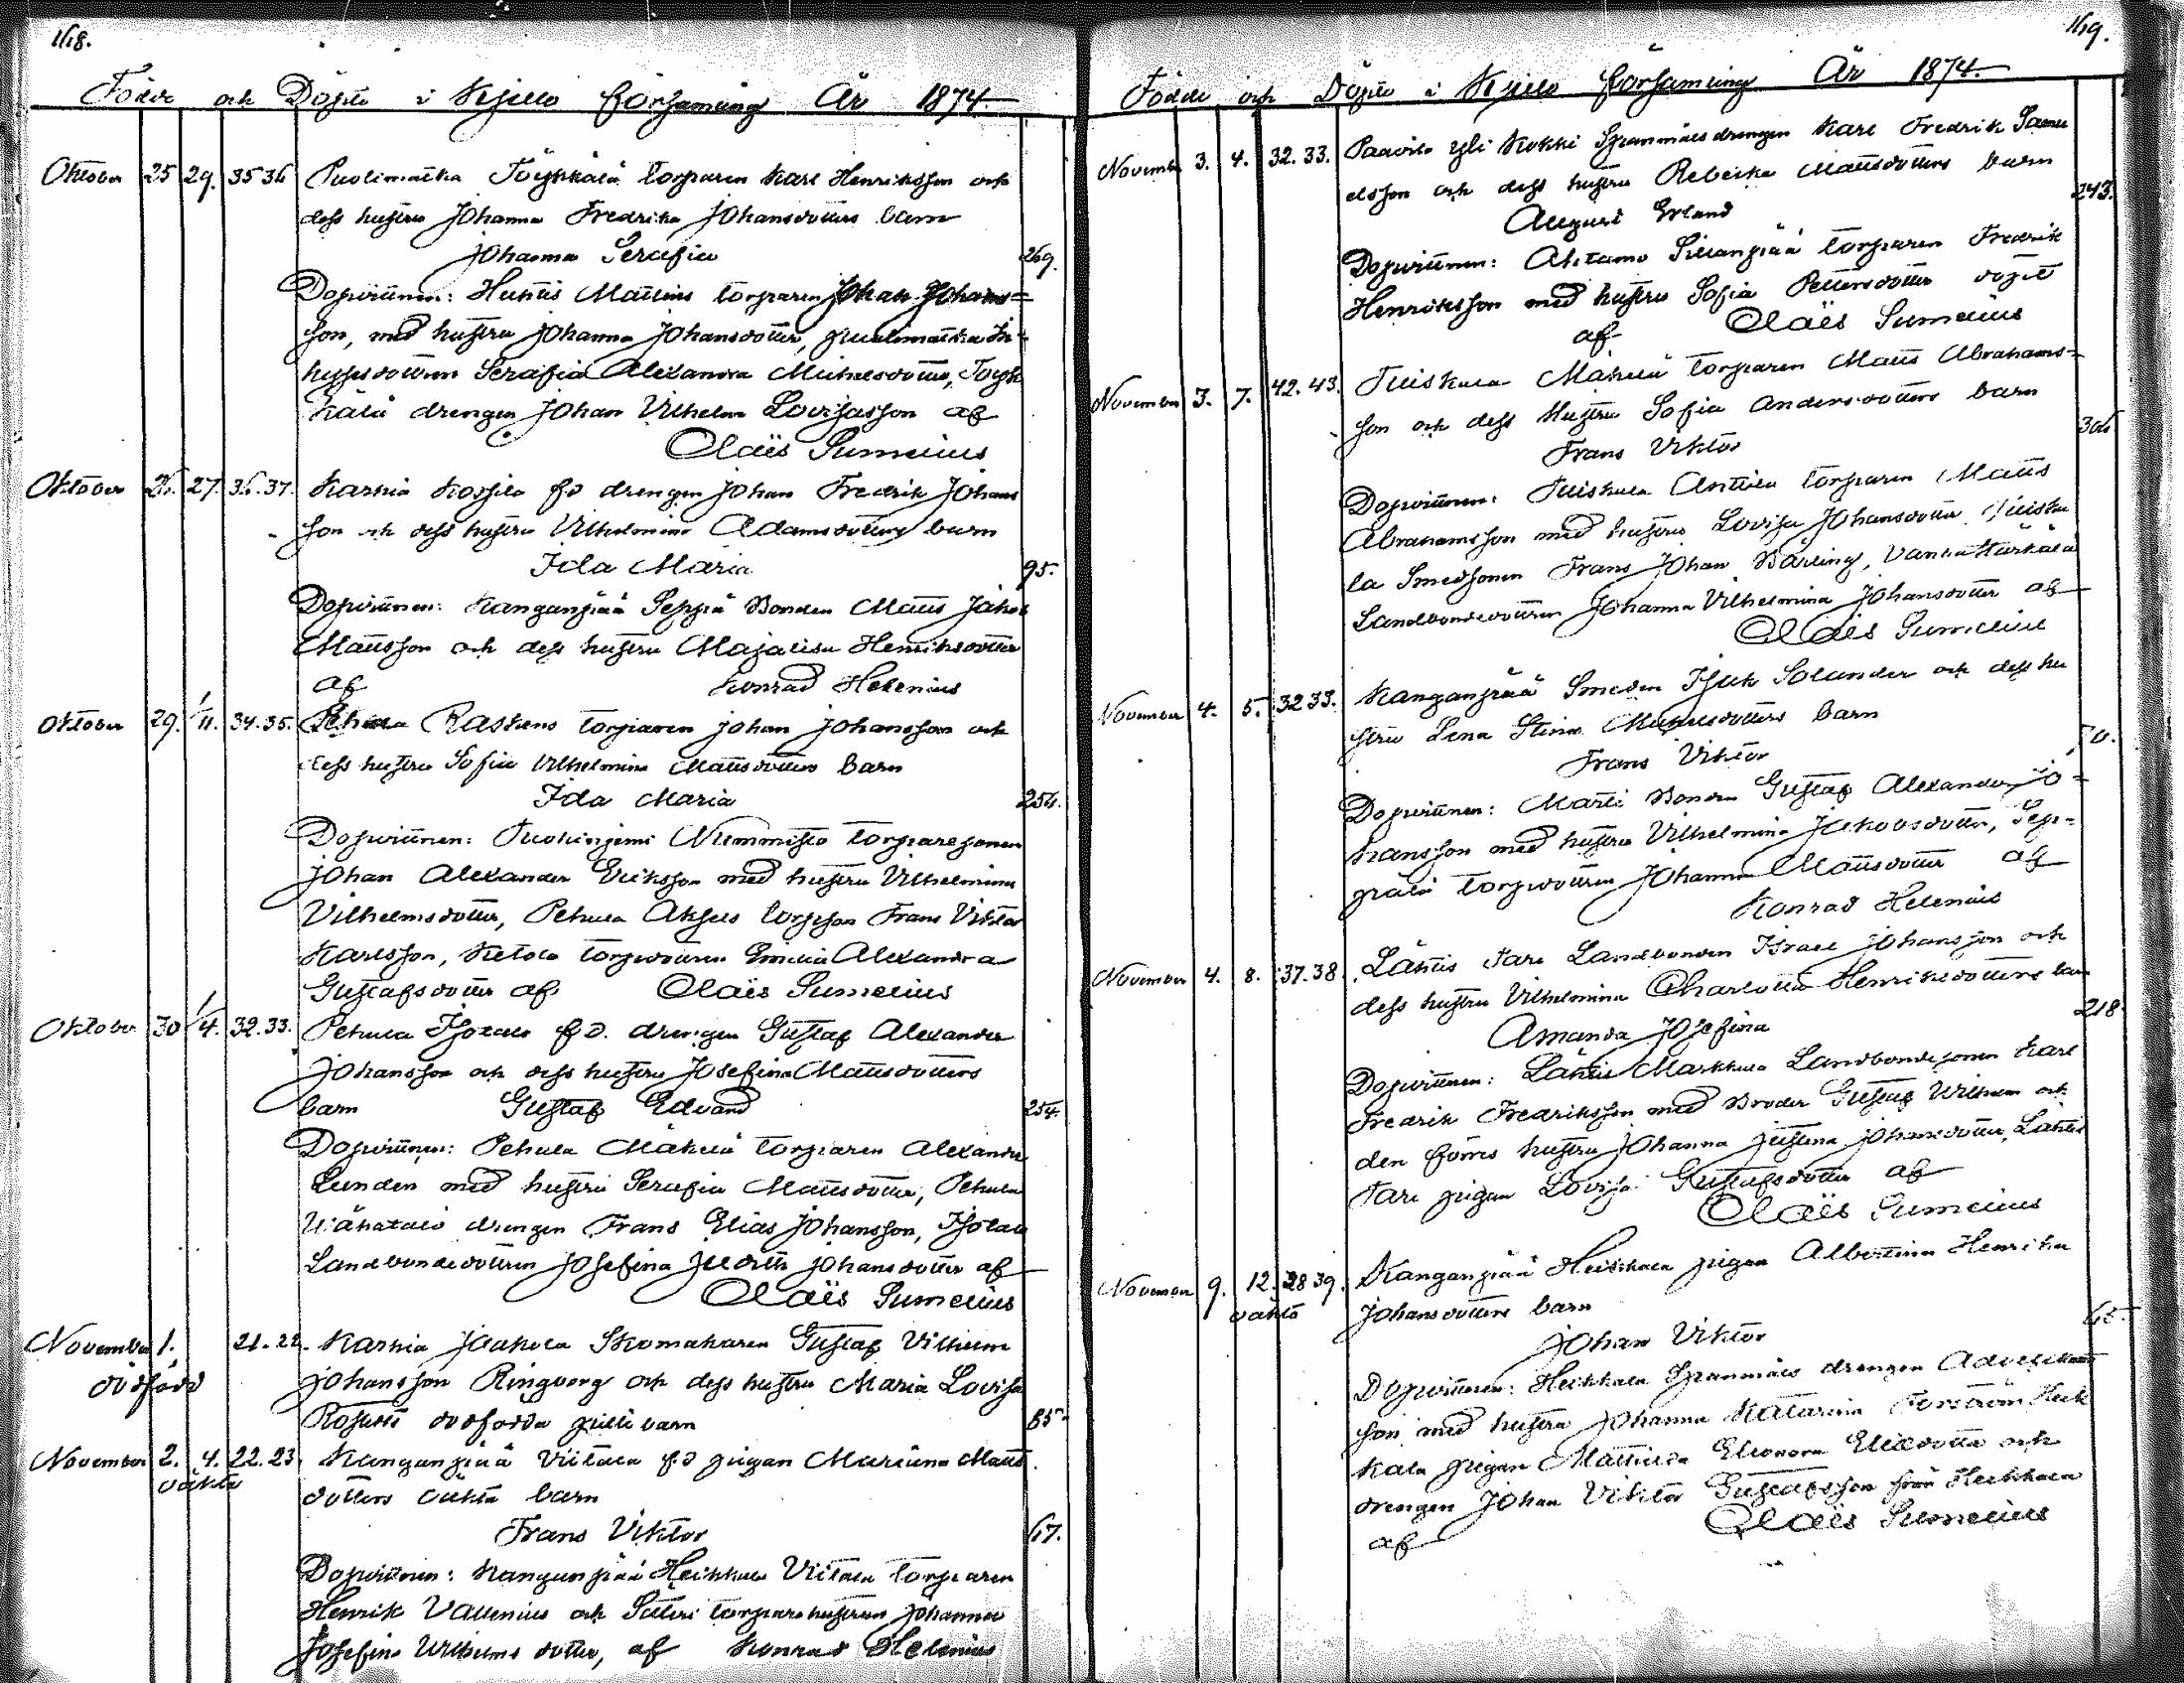 168.
Födde och Döpte i Kjulo församling År 1874.
Oktober 25 29. 35 36 Puolimatka Töykkälä torparen Karl Henriksson och
dess hustru Johanna Fredrika Johansdotters barn
Johanna Serafia 269.
Dopvittnen: Huhtis Mattlins torparen Johan Johans=
son, med hustru Johanna Johansdotter, puolimatka In=
hysesdottren Serafia Alexandra Michelsdotter, Töyk
kälä drengen Johan Vilhelm Lovisasson af
Claës Sumelius
Oktober 26. 27. 36.37. Karhia Kossila fd drengen Johan Fredrik Johans
son och dess hustru Vilhelmina Adamsdotters barn
Ida Maria 95.
Dopvittnen: Kanganpää Seppä Bonden Matts Jakob
Mattsson och dess hustru Majalisa Henriksdotter
af Konrad Helenius
Oktober 29. 1/11. 34.35. Pehula Raskens torparen Johan Johansson och
dess hustru Sofia Vilhelmina Mattsdotters barn
Ida Maria 254.
Dopvittnen: Tuohiniemi Niemmistö torparesonen
Johan Alexander Eriksson med hustru Vilhelmina
Vilhelmsdotter, Pehula Aksels torpson Frans Viktor
Karlsson, Ketola torpdottren Emilia Alexandra
Gustafsdotter af Claës Sumelius
Oktober 30 1/4. 32.33. Pehula Isotalo fd. drengen Gustaf Alexander
Johansson och dess hustru Josefina Mattsdotters
barn Gustaf Edvard 254.
Dopvittnen: Pehula Mäkelä torparen Alexander
Lunden med hustru Serafia Mattsdotter, Pehula
Vähatalo drengen Frans Elias Johansson, Isotalo
Landbondedottren Josefina Judith Johansdotter af
Claës Sumelius
November 1. 21.22. Karhia Jaakola Skomakaren Gustaf Vilhelm
dödfödd Johansson Ringborg och dess hustru Maria Lovisa
Rosetts dödfödda gillt barn 85.
November 2. 4. 22.23. Kanganpää Viitala fd pigan Mariana Matts
oäkta dotters oäkta barn
Frans Viktor 67.
Dopvittnen: Kanganpää Heikkula Viitala torparen
Henrik Vallenius och Säteri torparehustrun Johanna
Josefina Vilhelms dotter, af Konrad Helenius
169.
Födde och Döpte i Kjulo församling År 1874.
November 3. 4. 32.33. Paavila yli Kokki Spannmåls drengen Karl Fredrik Samu
elsson och dess hustru Rebecka Mattsdotters barn 243.
August Erland
Dopvittnen: Ahtamo Sillanpää torparen Fredrik
Henriksson med hustru Sofia Pettersdotter döpt
af Claës Sumelius
November 3. 7. 42.43. Tuiskula Mäkelä torparen Matts Abrahams=
son och dess Hustru Sofia Andersdotters barn 306
Frans Viktor
Dopvittnen: Tuiskula Anttila torparen Matts
Abrahamsson med hustru Lovisa Johansdotter Tuisku
la Smedsonen Frans Johan Bärling, Vanhakärkälä
Landbondedottren Johanna Vilhelmina Johansdotter af
Claës Sumelius
November 4. 5. 32 33. Kanganpää Smeden Isak Solander och dess hu
stru Lena Stina Michelsdotters barn 50.
Frans Viktor
Dopvittnen: Martti Bonden Gustaf Alexander Jo=
hansson med hustru Vilhelmina Jakobsdotter, Sep=
pälä torpdottren Johanna Mattsdotter af
Konrad Helenius
November 4. 8. 37.38. Lähtis Tare Landbonden Israel Johansson och
dess hustru Vilhelmina Charlotta Henriksdotters barn 218
Amanda Josefina
Dopvittnen: Lähtis Markkula Landbondesonen Karl
Fredrik Fredriksson med Broder Gustaf Wilhelm och
den förres hustru Johanna Justina Johansdotter, Lähtis
Tare pigan Lovisa Gustafsdotter af
Claës Sumelius
November 9. 12. 38 39. Kanganpää Heikkala pigan Albertina Henrika
oäkta Johansdotters barn 65.
Johan Viktor
Dopvittnen: Heikkala Spannmåls drengen
son med hustru Johanna Katarina Forström Heik
kala pigan Mathilda Eleonora Eliasdotter och
drengen Johan Viktor Gustafsson från Heikkala
af Claës Sumelius